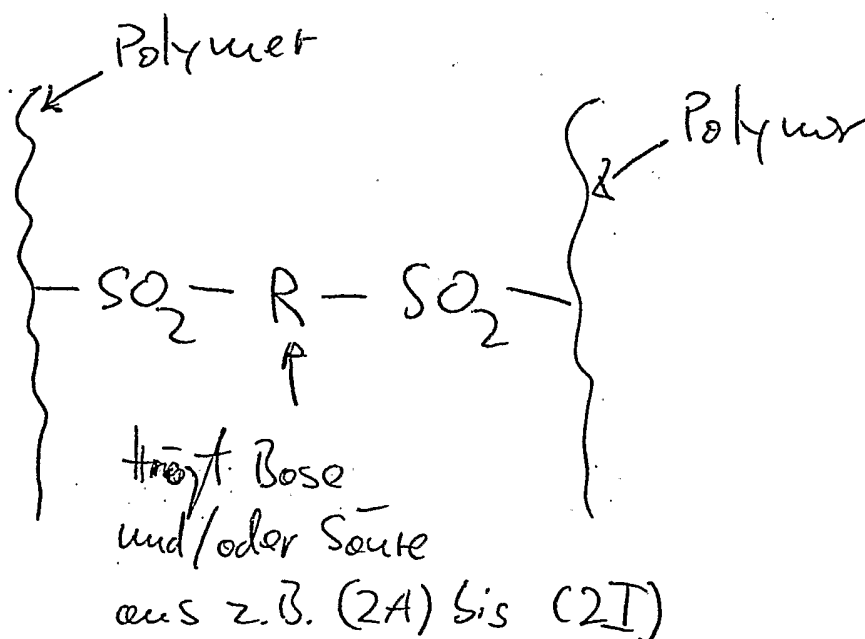 Polymer
Polymer
— SO₂ — R — SO₂ —
trägt Base
und/oder Säure
aus z.B. (2A) bis (2I)